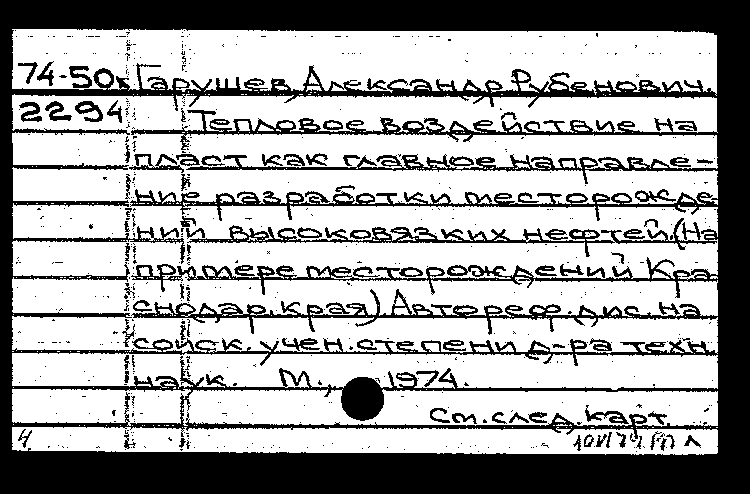 74-50к Гарушев, Александр Рубенович.
2294 Тепловое воздействие на
пласт как главное направле-
ние разработки месторожде
ний высоковязких нефтей. (На
примере месторождений Кра
снодар. края). Автореф. дис. на
соиск. учен. степени д-ра техн.
наук. М., 1974.
См. след. карт.
4